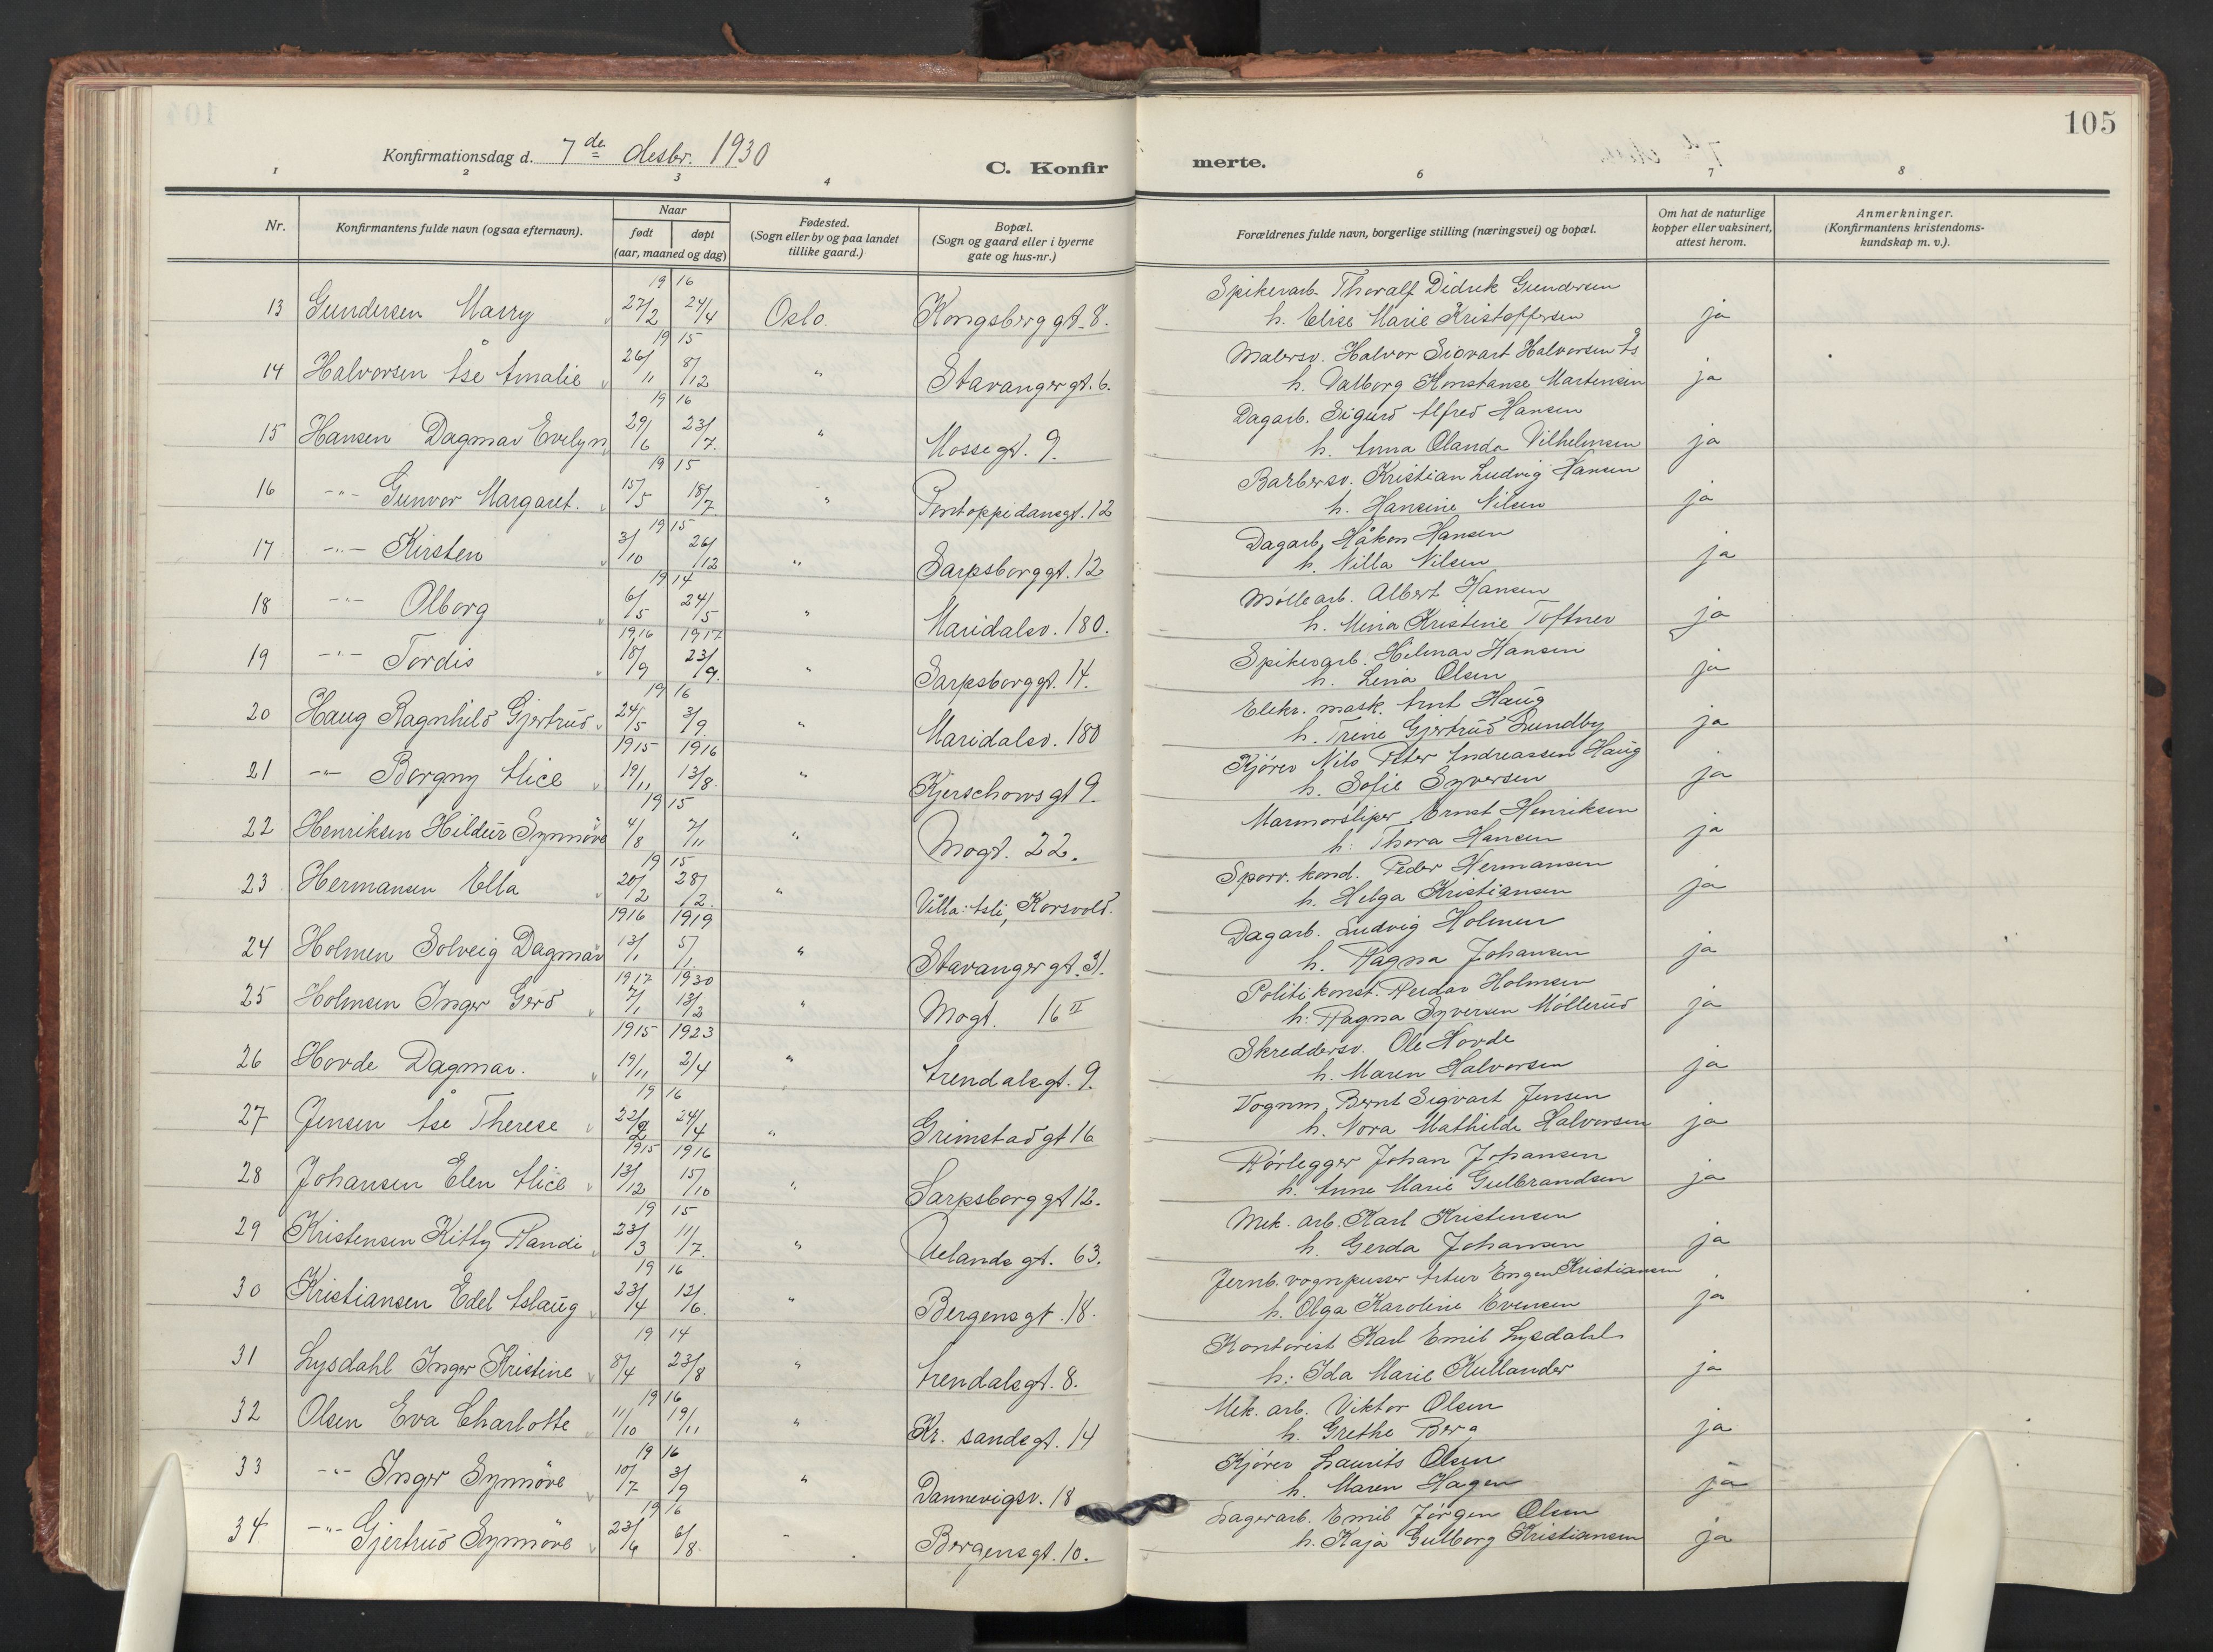 105
Konfirmationsdag d. 7de desbr. 1930
C. Konfirmerte.
1 2 3 4 6 7 8
Nr.
Konfirmantens fulde navn (ogsaa efternavn).
Naar
født døpt
(aar, maaned og dag)
Fødested.
(Sogn eller by og paa landet
tillike gaard.)
Bopæl.
(Sogn og gaard eller i byerne
gate og hus-nr.)
Forældrenes fulde navn, borgerlige stilling (næringsvei) og bopæl.
Om hat de naturlige
kopper eller vaksinert,
attest herom.
Anmerkninger.
(Konfirmantens kristendoms-
kundskap m. v.).
19 16
13 Gundersen Marry 27/2 24/4 Oslo. Kongsberggt. 8. Spikerarb. Thoralf Didrik Gundersen
h. Elise Marie Kristoffersen ja
19 15
14 Halvorsen Åse Amalie 26/11 8/12 " Stavangergt. 6. Malersv. Halvor Sigvart Halvorsen
h. Valborg Konstanse Martensen ja
19 16
15 Hansen Dagmar Evelyn 29/6 23/7. " Mossegt. 9. Dagarb. Sigurd Alfred Hansen
h. Anna Olanda Vilhelmsen ja
19 15
16 -"- Gunvor Margaret. 15/5 18/7. " Pontoppidansgt. 12 Barbersv. Kristian Ludvig Hansen
h. Hansine Nilsen ja
19 15
17 -"- Kirsten 3/10 26/12 " Sarpsborggt. 12 Dagarb. Håkon Hansen
h. Villa Nilsen ja
19 14
18 -"- Olborg 6/5 24/5 " Maridalsv. 180. Møllearb. Albert Hansen
h. Mina Kristine Toftner ja
1916 1917
19 -"- Tordis 18/9 23/9. " Sarpsborggt. 14. Spikerarb. Hilmar Hansen
h. Lina Olsen ja
19 16
20 Haug Ragnhild Gjertrud 24/5 3/9. " Maridalsv. 180 Elekr. mask. Arnt Haug
h. Trine Gjertrud Lundby ja
1915 1916
21 -"- Borgny Alice 19/11 13/8. " Kjerschowsgt 9. Kjører Nils Peter Andreassen Haug
h. Sofie Syversen ja
19 15
22 Henriksen Hildur Synnøve 4/8 7/11 " Mogt. 22. Marmorsliper Ernst Henriksen
h. Thora Hansen ja
19 15
23 Hermansen Ella 20/2 28/2. " Villa: Åsli, Korsvold. Sporv. kond. Peder Hermansen
h. Helga Kristiansen ja
1916 1919
24 Holmen Solveig Dagmar 13/1 5/1. " Stavangergt. 31. Dagarb. Ludvig Holmen
h. Ragna Johansen ja
1917 1930
25 Holmsen Inger Gerd 7/1 13/2 " Mogt. 16 II Politikonst. Reidar Holmsen
h: Ragna Syversen Møllerud ja
1915 1923
26 Hovde Dagmar. 19/11 2/4 " Arendalsgt. 9. Skreddersv. Ole Hovde
h. Maren Halvorsen ja
19 16
27 Jensen Åse Therese 22/2 24/4 " Grimstadgt 16 Vognm. Bernt Sigvart Jensen
h. Nora Mathilde Halvorsen ja
1915 1916
28 Johansen Elen Alice 13/12 15/10 " Sarpsborggt 12. Rørlegger Johan Johansen
h. Anne Marie Gulbrandsen ja
19 15
29 Kristensen Kitty Randi 23/3 11/7. " Uelandsgt. 63. Mek. arb. Karl Kristensen
h. Gerda Johansen ja
19 16
30 Kristiansen Edel Aslaug 23/4 12/6. " Bergensgt. 18. Jernb. vognpusser Artur Engen Kristiansen
h. Olga Karoline Evensen ja
19 14
31 Lysdahl Inger Kristine 8/4 23/8 " Arendalsgt. 8. Kontorist Karl Emil Lysdahl
h: Ida Marie Kullander ja
19 16
32 Olsen Eva Charlotte 11/10 19/11 " Kr. sandsgt. 14 Mek. arb. Viktor Olsen
h. Grethe Berg ja
19 16
33 -"- Inger Synnøve 10/7 3/9 " Dannevigsv. 18 Kjører Laurits Olsen
h. Maren Hagen ja
19 16
34 -"- Gjertrud Synnøve 23/6 6/8. - Bergensgt. 10. Lagerarb. Emil Jørgen Olsen
h. Kaja Gulborg Kristiansen ja